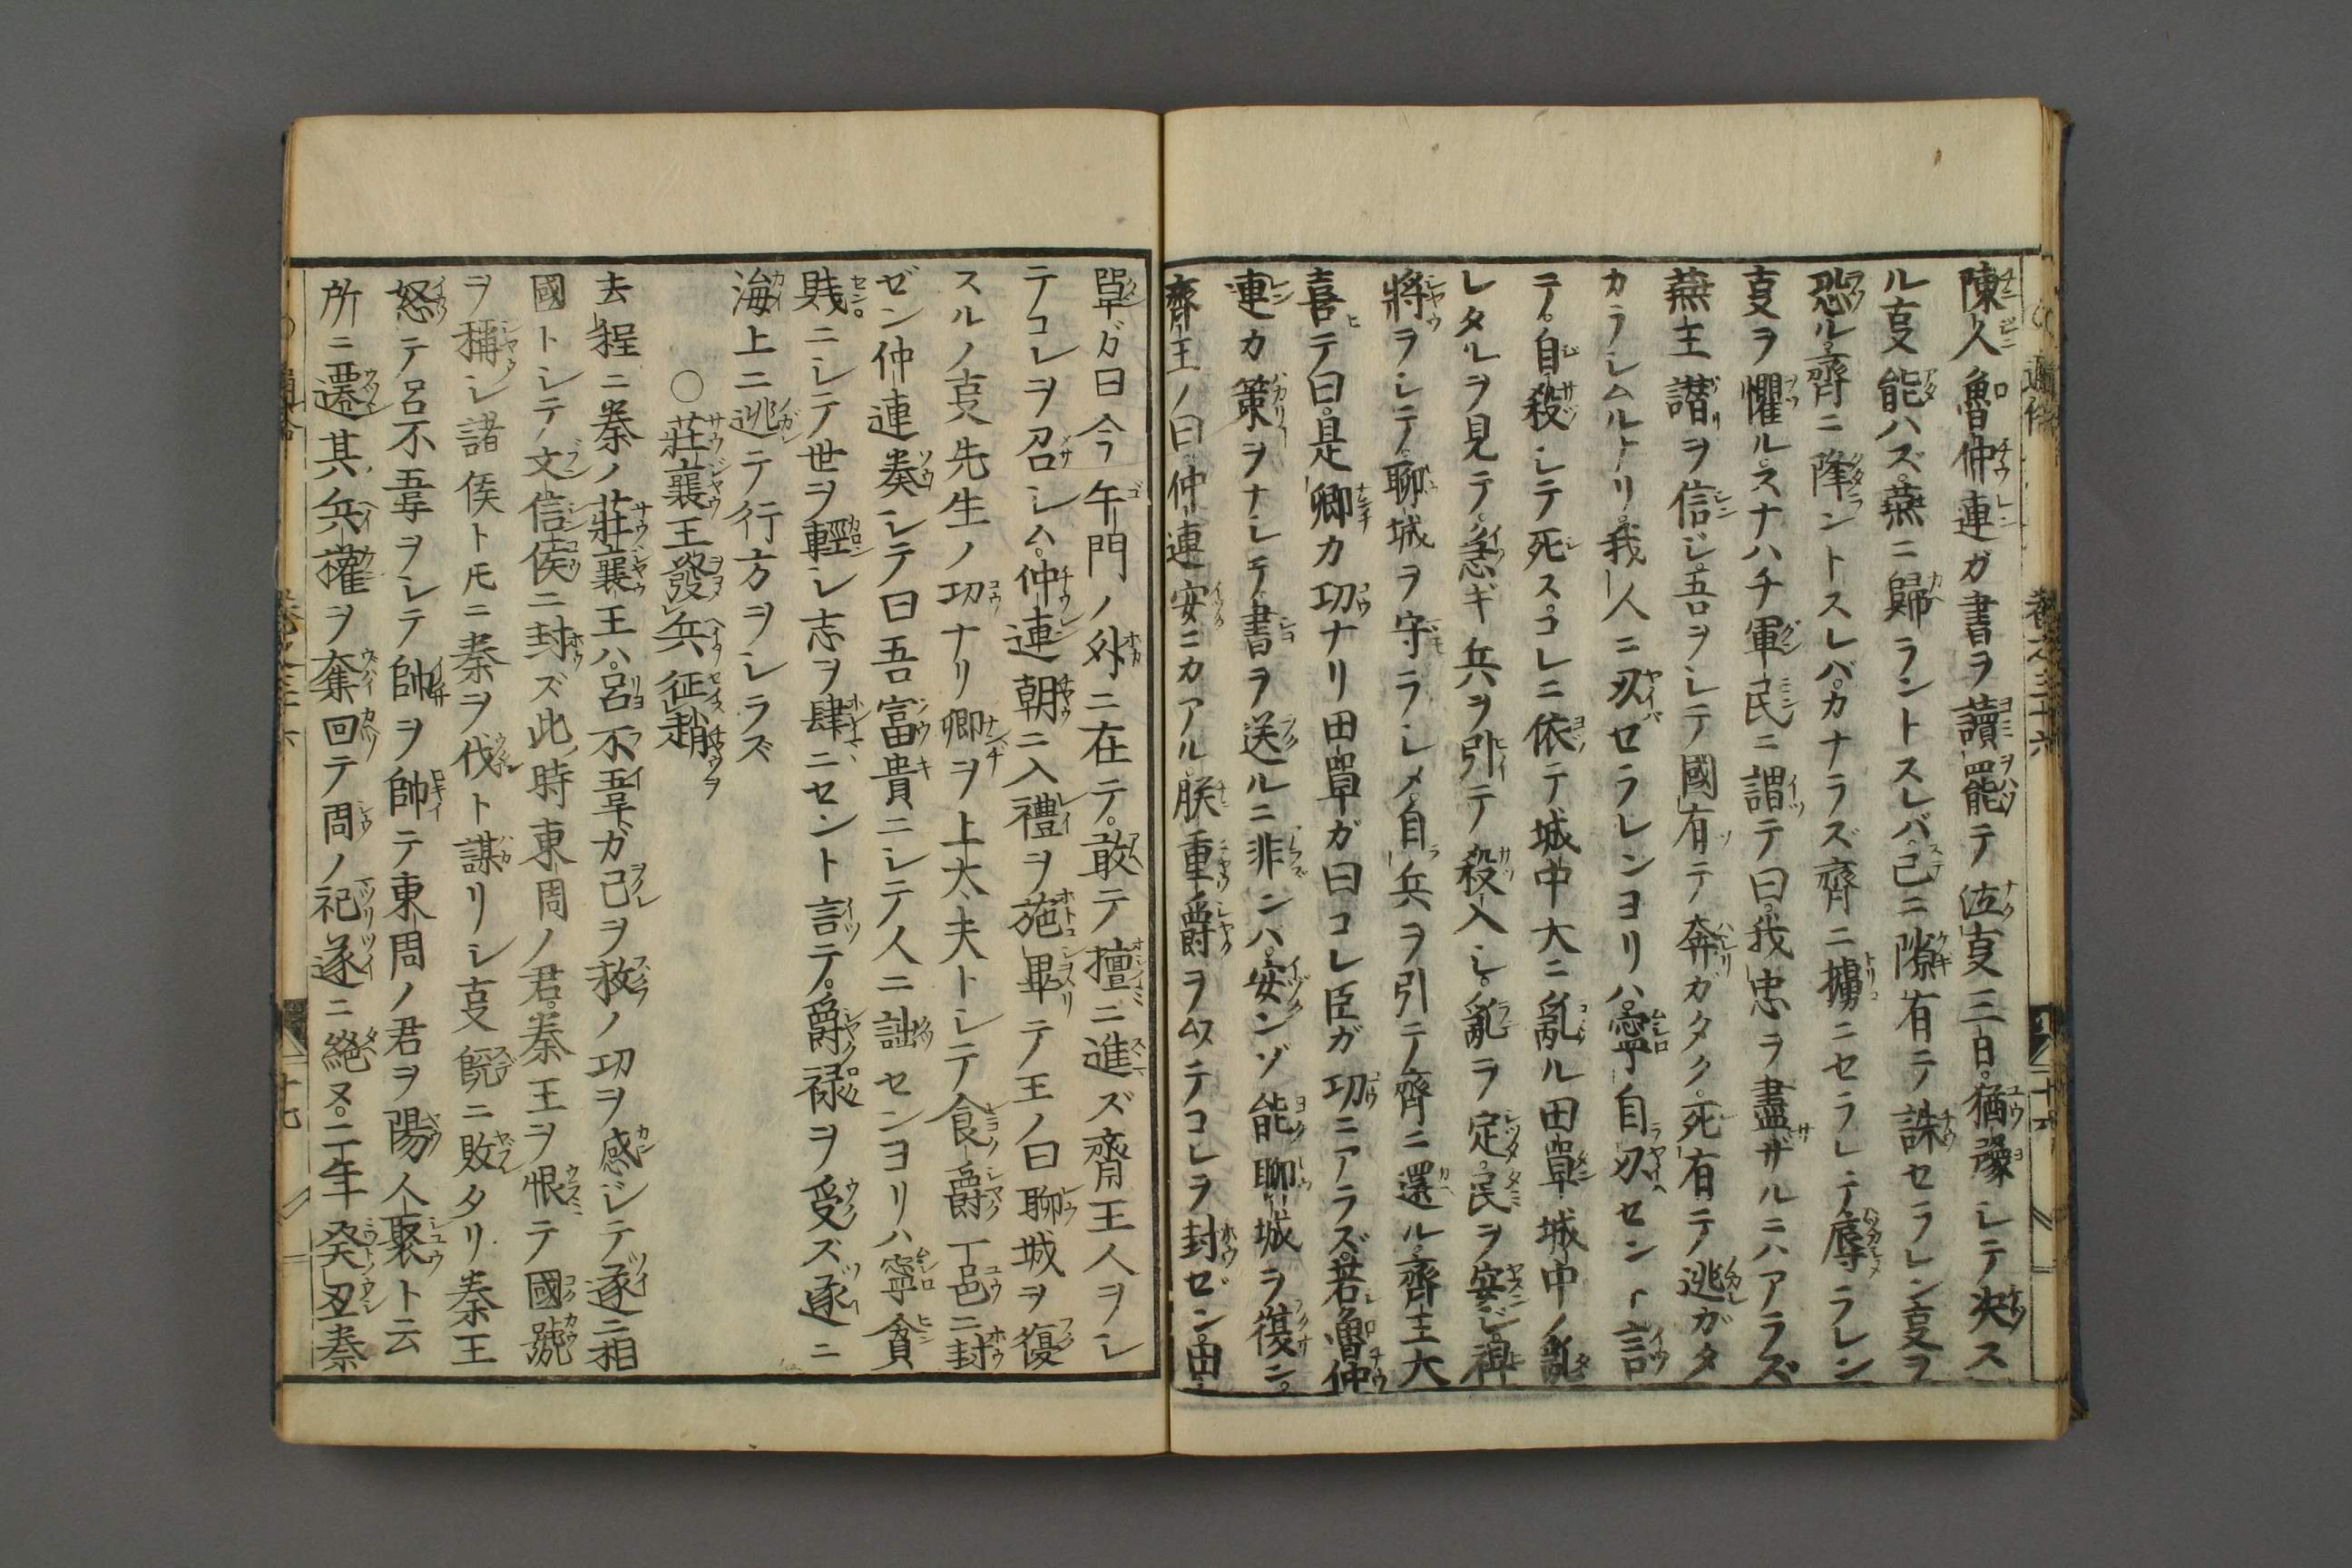 陳人魯仲連ガ書ヲ讀罷テ泣亰三日。猶豫シテ决ス
ル亰能ハズ。燕ニ歸ラントスレバ。已ニ隙有テ誅セラレン亰ヲ
恐ル。齊ニ降ントスレバ。カナラズ齊ニ擄ニセラレテ辱ラレン
亰ヲ懼ル。スナハチ軍民ニ謂テ曰。我忠ヲ盡ザルニハアラズ
燕王譛ヲ信ジ。吾ヲシテ國有テ奔ガタク。死有テ逃ガタ
カラシムルナリ。我人ニ刄セラレンヨリハ。寧自刄セント言
テ。自殺シテ死ス。コレニ依テ城中大ニ亂ル田單城中ノ亂
レタルヲ見テ。急ギ兵ヲ引テ殺入シ。亂ヲ定。民ヲ安ジ。裨
將ヲシテ。聊城ヲ守ラシメ。自兵ヲ引テ齊ニ還ル。齊王大
喜テ曰。是卿カ功ナリ田單ガ曰コレ臣ガ功ニアラズ。若魯仲
連カ策ヲナシテ。書ヲ送ルニ非ンハ。安ンゾ能聊城ヲ復ニ。
齊王ノ曰仲連安ニカアル。朕重爵ヲ以テコレヲ封ゼン。田
單ガ曰今午門ノ外ニ在テ。敢テ擅ニ進ズ齊王人ヲシ
テコレヲ召シム。仲連朝ニ入禮ヲ施畢テ王ノ曰聊城ヲ復
スルノ亰先生ノ功ナリ卿ヲ上太夫トシテ食爵丁邑ニ封
ゼン仲連奏シテ曰吾富貴ニシテ人ニ詘センヨリハ寧貪
賎ニシテ世ヲ輕シ志ヲ肆ニセント言テ。爵禄ヲ受ズ遂ニ
海上ニ逃テ行方ヲシラズ
○莊襄王發兵征趙
去程ニ秦ノ莊襄王ハ。呂不韋ガ己ヲ救ノ功ヲ感ジテ遂ニ相
國トシテ文信侯ニ封ズ此時東周ノ君。秦王ヲ恨テ國號
ヲ稱シ諸侯ト𪜈ニ秦ヲ伐ト謀リシ亰既ニ敗タリ秦王
怒テ呂不韋ヲシテ帥ヲ帥テ東周ノ君ヲ陽人聚ト云
所ニ遷其兵權ヲ奪回テ周ノ祀遂ニ絕ヌ。二年癸丑秦